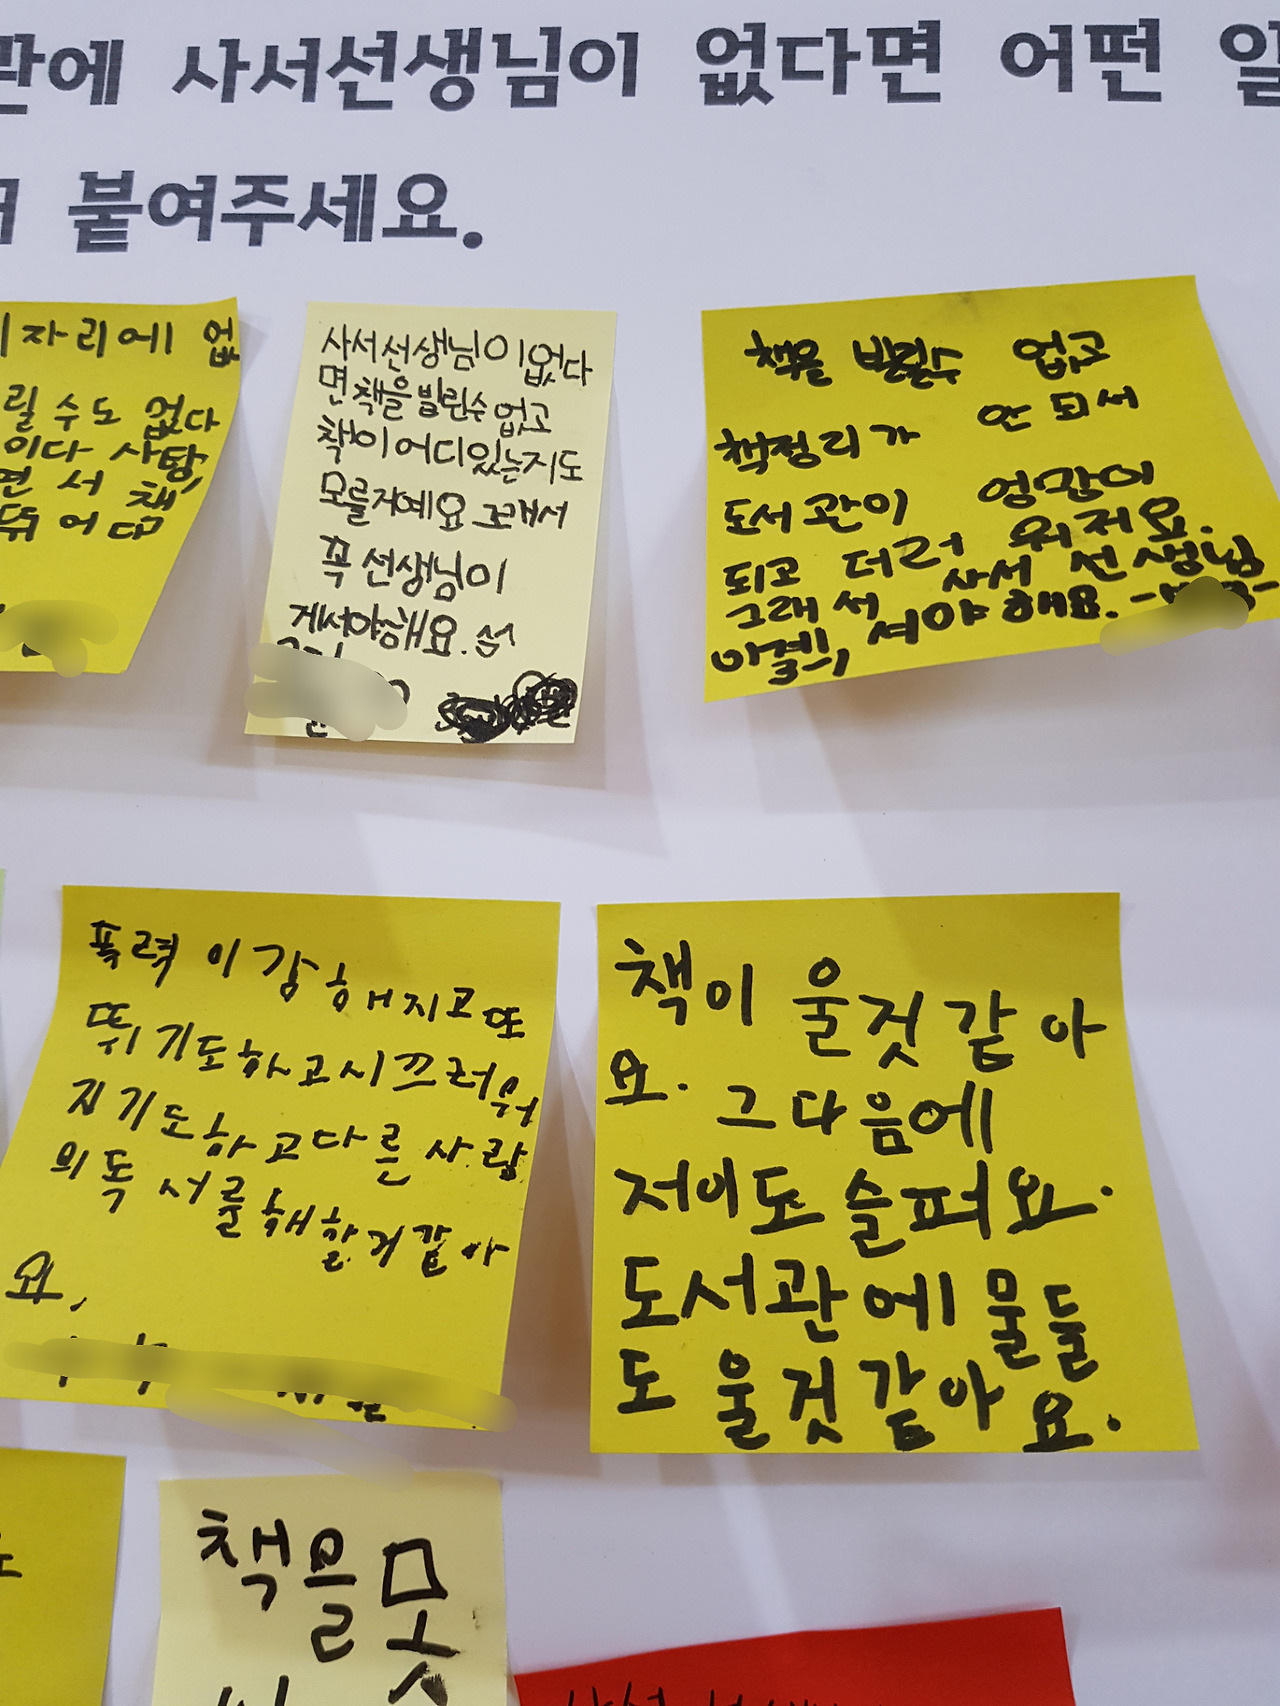 관에 사서선생님이 없다면 어떤 일
붙여주세요.
자리에 없
릴 수도 없다
이다 사탕,
면 서 책
뛰어다
사서선생님이없다
면책을빌린수없고
책이어디있는지도
모를거예요 그래서
꼭 선생님이
게서야해요.
책을 빌릴수 없고
책정리가 안 되서
도서관이 엉망이
되고 더러 워저요.
그래서 사서 선생님
이계셔야해요.
폭력이강해지고또
뛰기도하고시끄러워
지기도하고다른사람
의독서를해할거같아
요.
책이 울것같아
요. 그다음에
저이도 슬퍼요.
도서관에물들
도 울것같아요.
책을못